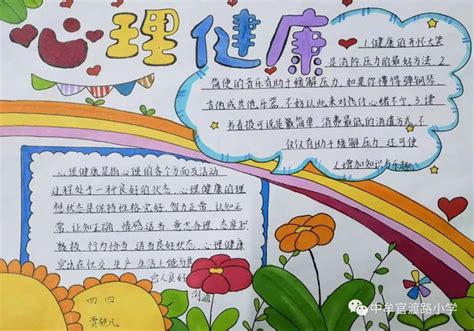 心理健康
1.健康的开怀大笑
是消除压力的最好方法 2
简便的音乐有助于缓解压力。如果你懂得弹钢琴、
吉他或其他乐器,不妨以此来对付心绪不宁 3.读
书看报可说是最简单、消费最低的消遣方式。不
仅仅有助于缓解压力,还可使
人增加知识与乐趣
心理健康是指心理的各个方面及活动
过程处于一种良好的状态。心理健康的理
想状态是保持性格完好、智力正常、认知正
常、认知正确、情感适当、意志合理、态度积
极、行为恰当、适当良好状态。心理健康
突出在社交、生产、生活上能与
他人良好
沟通
四 四
中牟官渡路小学